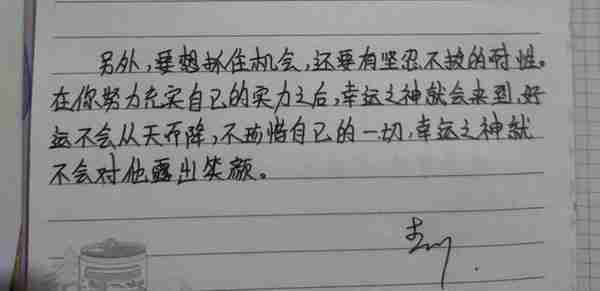 另外,要想抓住机会,还要有坚忍不拔的耐性。
在你努力充实自己的实力之后,幸运之神就会来到,好
运不会从天而降,不珍惜自己的一切,幸运之神就
不会对他露出笑颜。